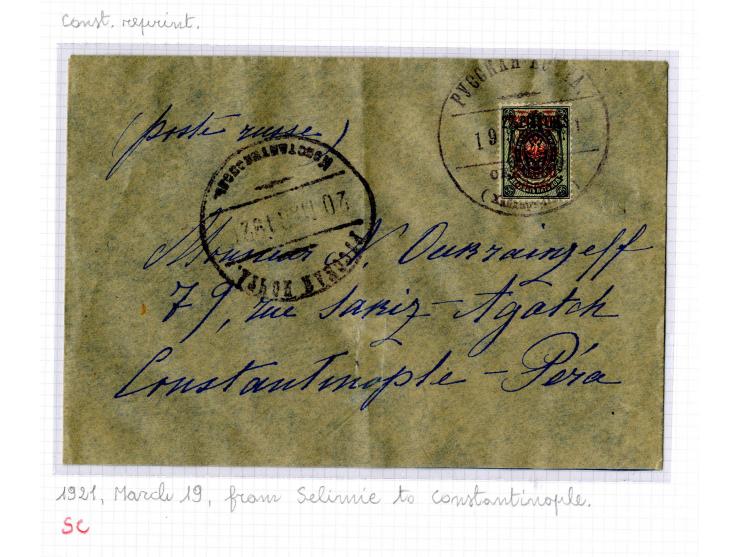 Const. reprint.
(poste russe)
РУССКАЯ ПОЧТА
19
КОНСТАНТИНОПОЛЬ
20
РУССКАЯ ПОЧТА
Monsieur V. Oukrainzeff
79, rue Sakiz-Agatch
Constantinople - Péra
1921, March 19, from Selimie to Constantinople.
SC